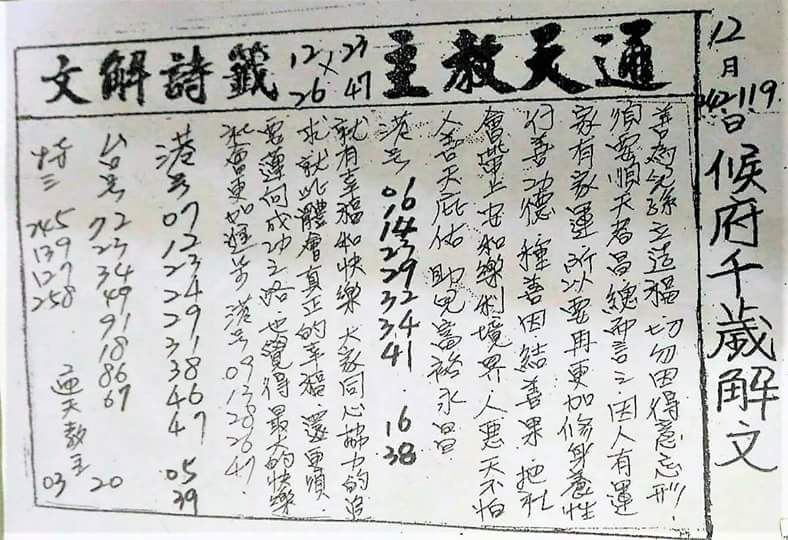 12月
042 119
日候府千歲解文
通天教主 12×26 23 47 籤詩解文
善為兒孫立造福.切勿因得意忘形
須要順天者昌總而言之因人有運
家有家運 所以要再更加修身養性
行善功德 種善因結善果.把社
會帶上安和樂利境界.人惡天不怕
人善天庇佑 助兒富裕永昌
港号 06 14 23 29 32 34 41 16 38
就有幸福和快樂 大家同心協力的追
求就此體會真正的幸福 還更須
要運何成功之路 也覺得最大的快樂
社會更加進步 港号 09 13 28 26 47
港号 07 12 23 24 29 31 38 46 47 05 39
台号 72 23 34 49 91 18 86 67 20
特三 245 139 127 258 通天教主 03